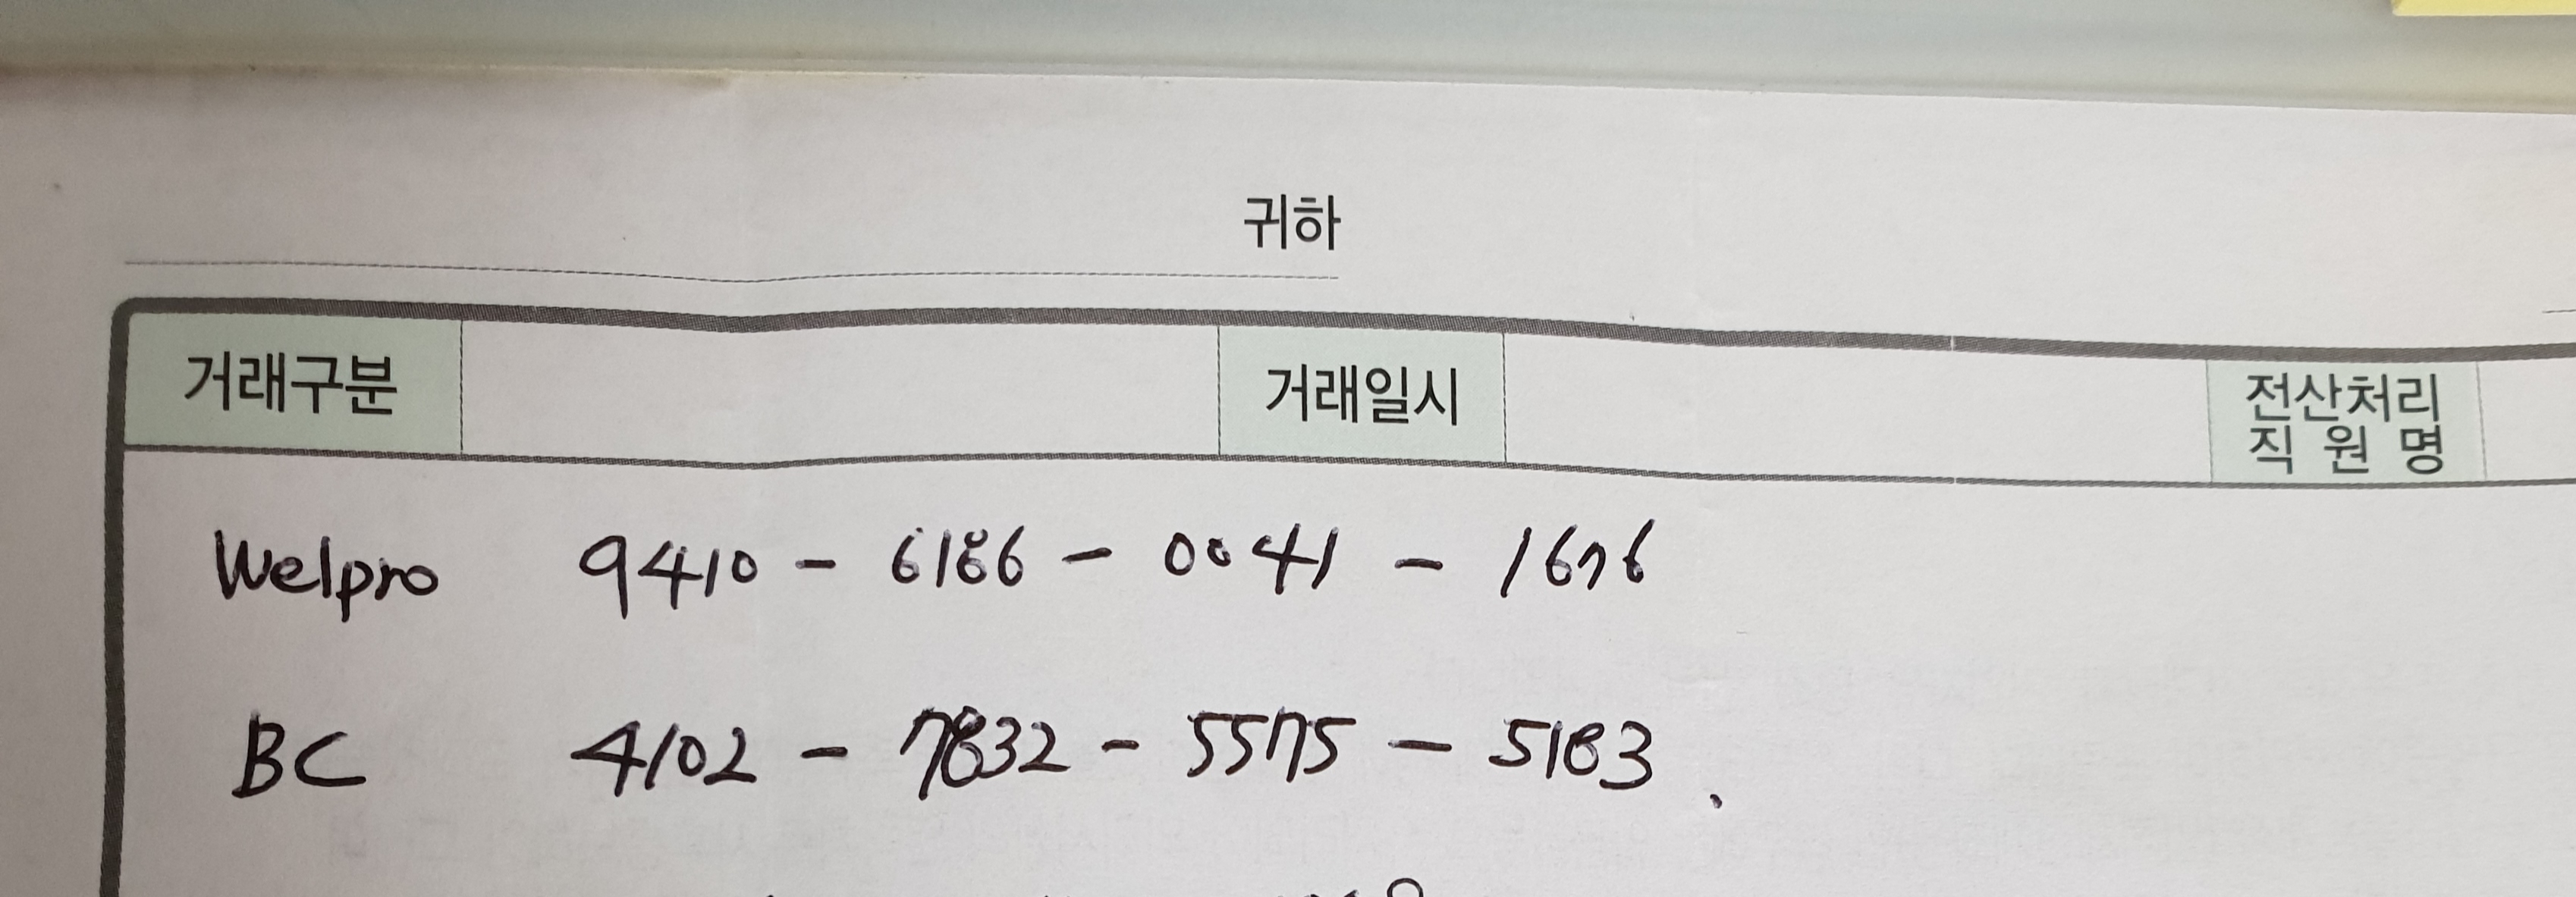 귀하
거래구분 거래일시 전산처리 직원명
Welpro 9410 - 6186 - 0041 - 1676
BC 4102 - 7832 - 5575 - 5183.